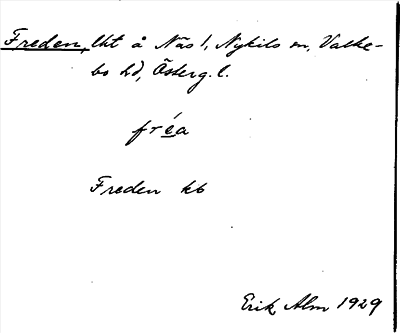 Freden, lht å Näs 1, Nykils sn, Valke-
bo hd, Österg. l.
fréa
Freden kb
Erik Alm 1929